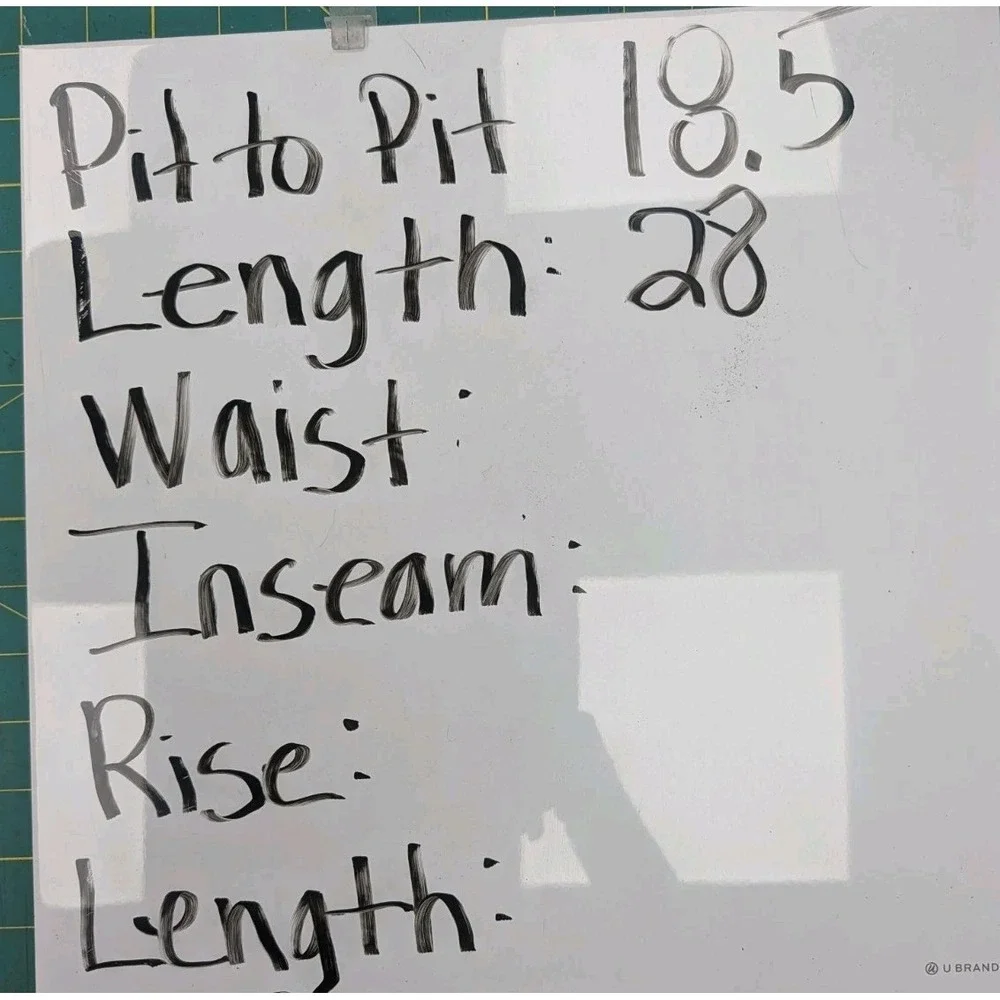 Pit to Pit 18.5
Length: 28
Waist:
Inseam:
Rise:
Length:
U BRAND